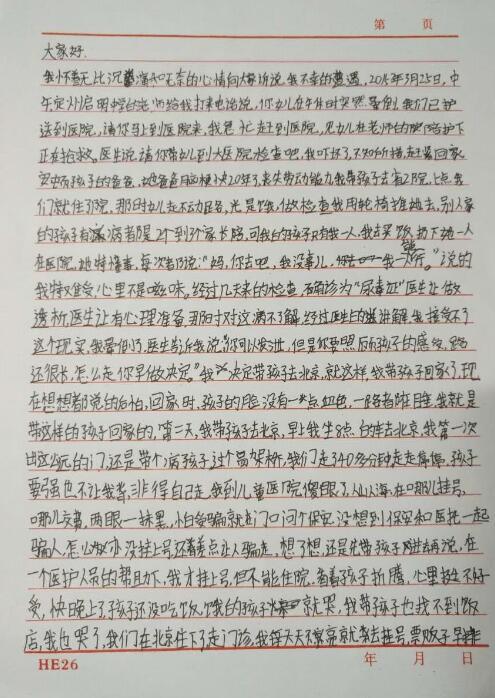 第 页
大家好.
我怀着无比沉痛和无奈的心情向大家诉说我不幸的遭遇,2015年5月25日,中
午定州启明学校的老师给我打来电话说,你女儿在午休时突然晕倒,我们已护
送到医院,请你马上到医院来,我急忙赶到医院,见女儿在老师的陪护下
正在抢救。医生说请你带女儿到大医院检查吧,我吓坏了,不知所措,赶紧回家
安顿孩子的爸爸,她爸爸有脑梗快20年了,丧失劳动能力,我带孩子去省2院,上点我
们就住了院,那时女儿走不动路,光是饿,做检查我用轮椅推她去,别人家
的孩子有病者是2个到3个家长陪,可我的孩子只有我一人,我去买饭扔下她一人
在医院,她特懂事,每次者阝说:"妈,你去吧,我没事儿,我一人能行。"说的
我特难受,心里不是滋味。经过几天来的检查,确诊为"尿毒症"医生让做
透析,医生让有心理准备,那时对这病不了解,经过医生的讲解,我接受不了
这个现实,我晕倒了,医生告诉我说:"你可以发泄,但是你要照顾孩子的感受,路
还很长,怎么走你早做决定。"我决定带孩子去北京,就这样,我带孩子回家了,现
在想想都说的后怕,回家时,孩子的脸没有一点血色,一路者陪睡,我就是
带这样的孩子回家的,第二天,我带孩子去北京,早上我坐8点的车去北京,我第一次
出这么远的门,还是带个病孩子,过个高架桥,我们走了40多分钟,走走停停,孩子
要强也不让我背,非得自己走,我到儿童医院傻眼了,人山人海,在哪儿挂号,
哪儿交费,两眼一抹黑,小白受骗就在门口问个保安,没想到保安和医托一起
骗人,怎么办,没挂上号还差点让人骗走,想了想还是先带孩子进去再说,在
一个医护人员的帮助下,我才挂上号,但不能住院,看着孩子折腾,心里挺不好
受,快晚上了,孩子还没吃饭,饿的孩子就哭,我带孩子也找不到饭
店,我也哭了,我们在北京住下了走门诊,我每天天不亮就去挂号,票贩子早排
HE26 年 月 日